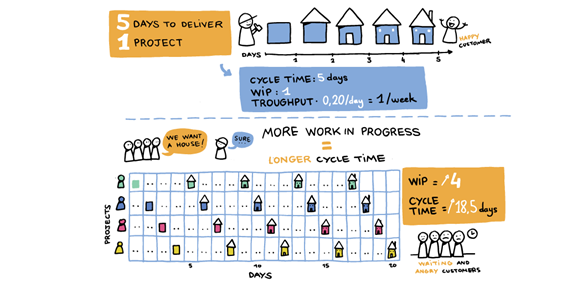 5 DAYS TO DELIVER
1 PROJECT
DAYS
1 2 3 4 5
HAPPY
CUSTOMER
CYCLE TIME: 5 days
WIP: 1
TROUGHPUT· 0,20/day = 1/week
WE WANT
A HOUSE!
SURE
MORE WORK IN PROGRESS
=
LONGER CYCLE TIME
PROJECTS
5 10 15 20
DAYS
WIP = 4
CYCLE
TIME = 18,5 days
WAITING AND
ANGRY CUSTOMERS